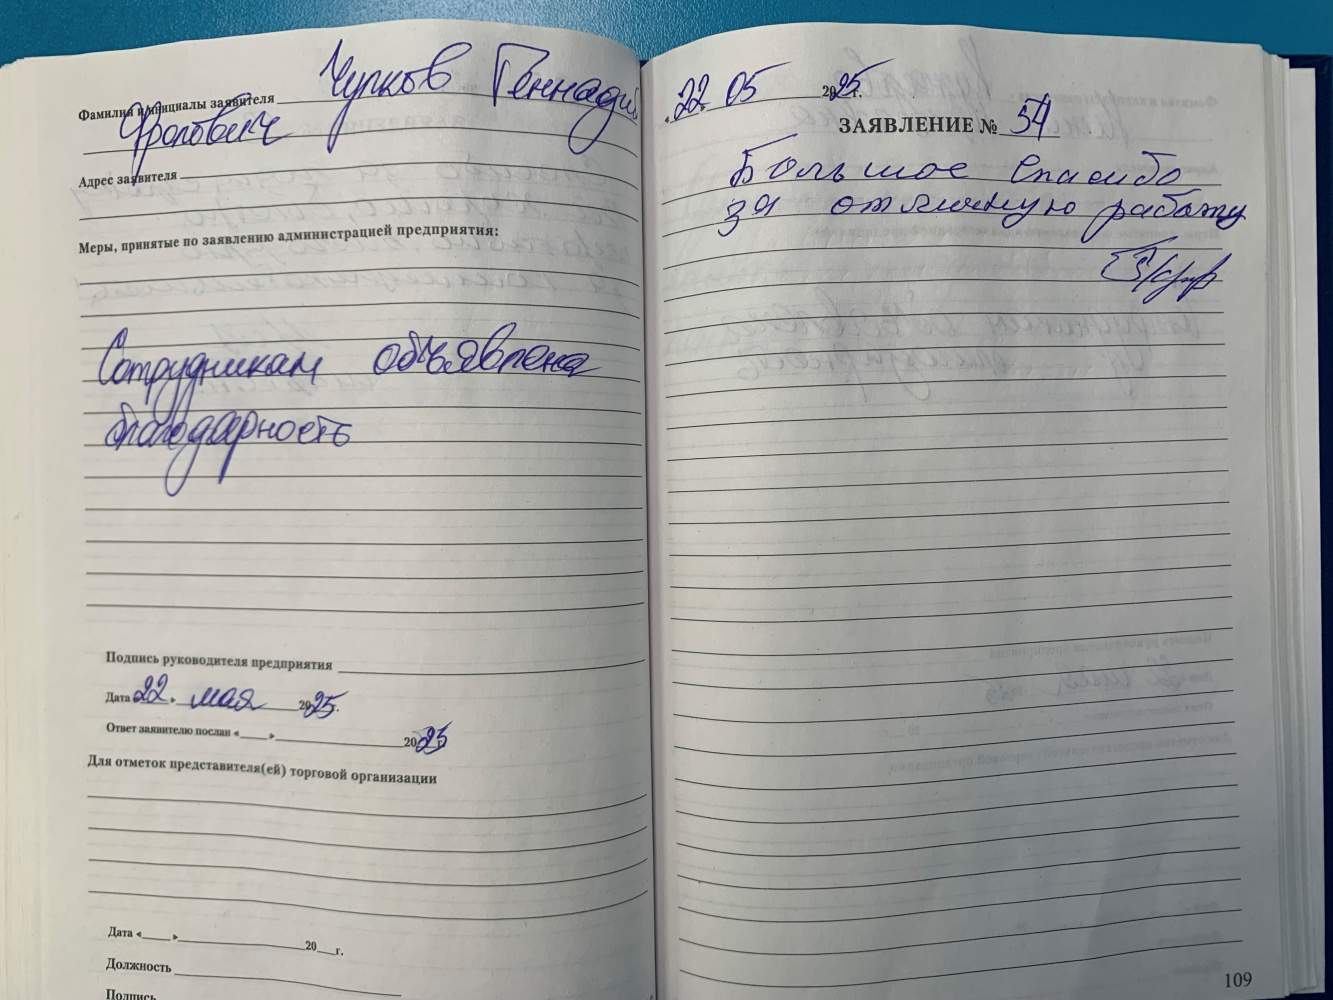 Фамилия и инициалы заявителя Чупков Геннадий
Фролович
Адрес заявителя
Меры, принятые по заявлению администрацией предприятия:
Сотрудникам объявлена
благодарность
Подпись руководителя предприятия
Дата 22 » мая 2025г.
Ответ заявителю послан «____»____ 2025
Для отметок представителя(ей) торговой организации
Дата «____»____ 20__г.
Должность
Подпись
«22 05 2025г.
ЗАЯВЛЕНИЕ № 54
Большое спасибо
за отличную работу
109